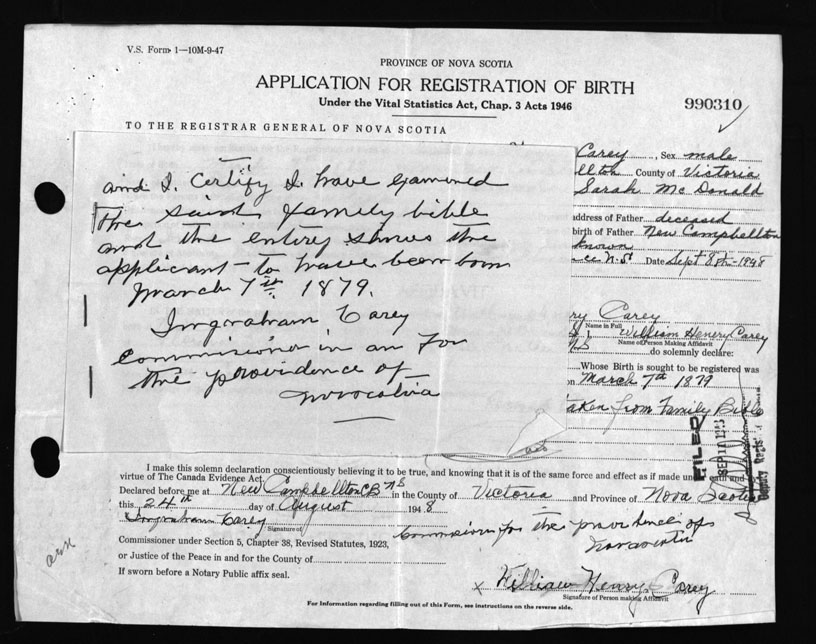 V.S. Form 1—10M-9-47
PROVINCE OF NOVA SCOTIA
APPLICATION FOR REGISTRATION OF BIRTH
Under the Vital Statistics Act, Chap. 3 Acts 1946
990310
TO THE REGISTRAR GENERAL OF NOVA SCOTIA
and I. Certify I have examined
the said family bible
and the entry shows the
applicant to have been born
March 7th 1879.
Ingraham Carey
Commissioner in an For
the providence of
Carey, Sex male
llton County of Victoria
Sarah McDonald
address of Father deceased
birth of Father New Campbellton
known
N.S. Date Sept 8th-1948
ry Carey
Name in Full William Henery Carey
Name of Person Making Affidavit
do solemnly declare:
Whose Birth is sought to be registered was
n March 7th 1879
taken from Family Bible
FILED
SEP 10
Deputy Regis
I make this solemn declaration conscientiously believing it to be true, and knowing that it is of the same force and effect as if made under oath and
virtue of The Canada Evidence Act.
Declared before me at New Campbellton CB NS in the County of Victoria and Province of Nova Scotia
this 24th day of August 1948
Ingraham Carey Commision for the providence of
Signature of
Commissioner under Section 5, Chapter 38, Revised Statutes, 1923,
or Justice of the Peace in and for the County of
If sworn before a Notary Public affix seal.
x William Henry Carey
Signature of Person making Affidavit
For Information regarding filling out of this Form, see instructions on the reverse side.